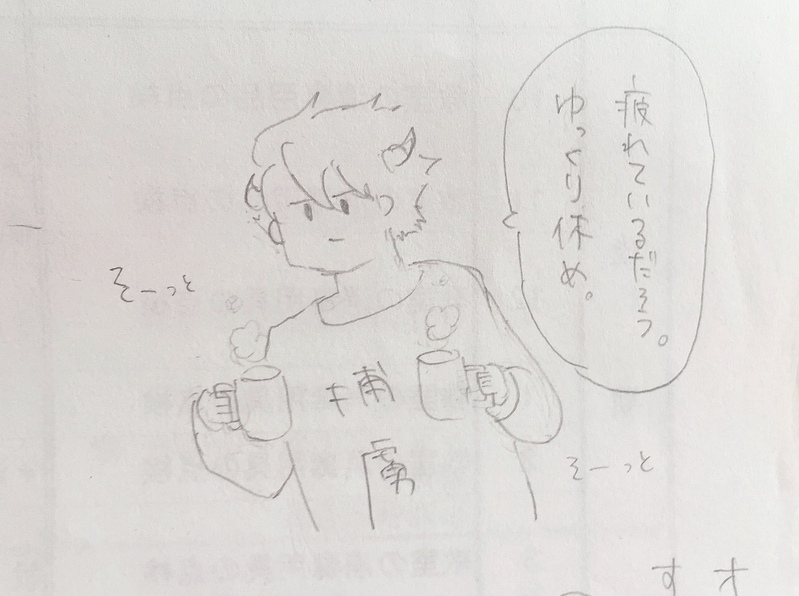 疲れているだろう。
ゆっくり休め。
そーっと
捕
虜
そーっと
オ
す